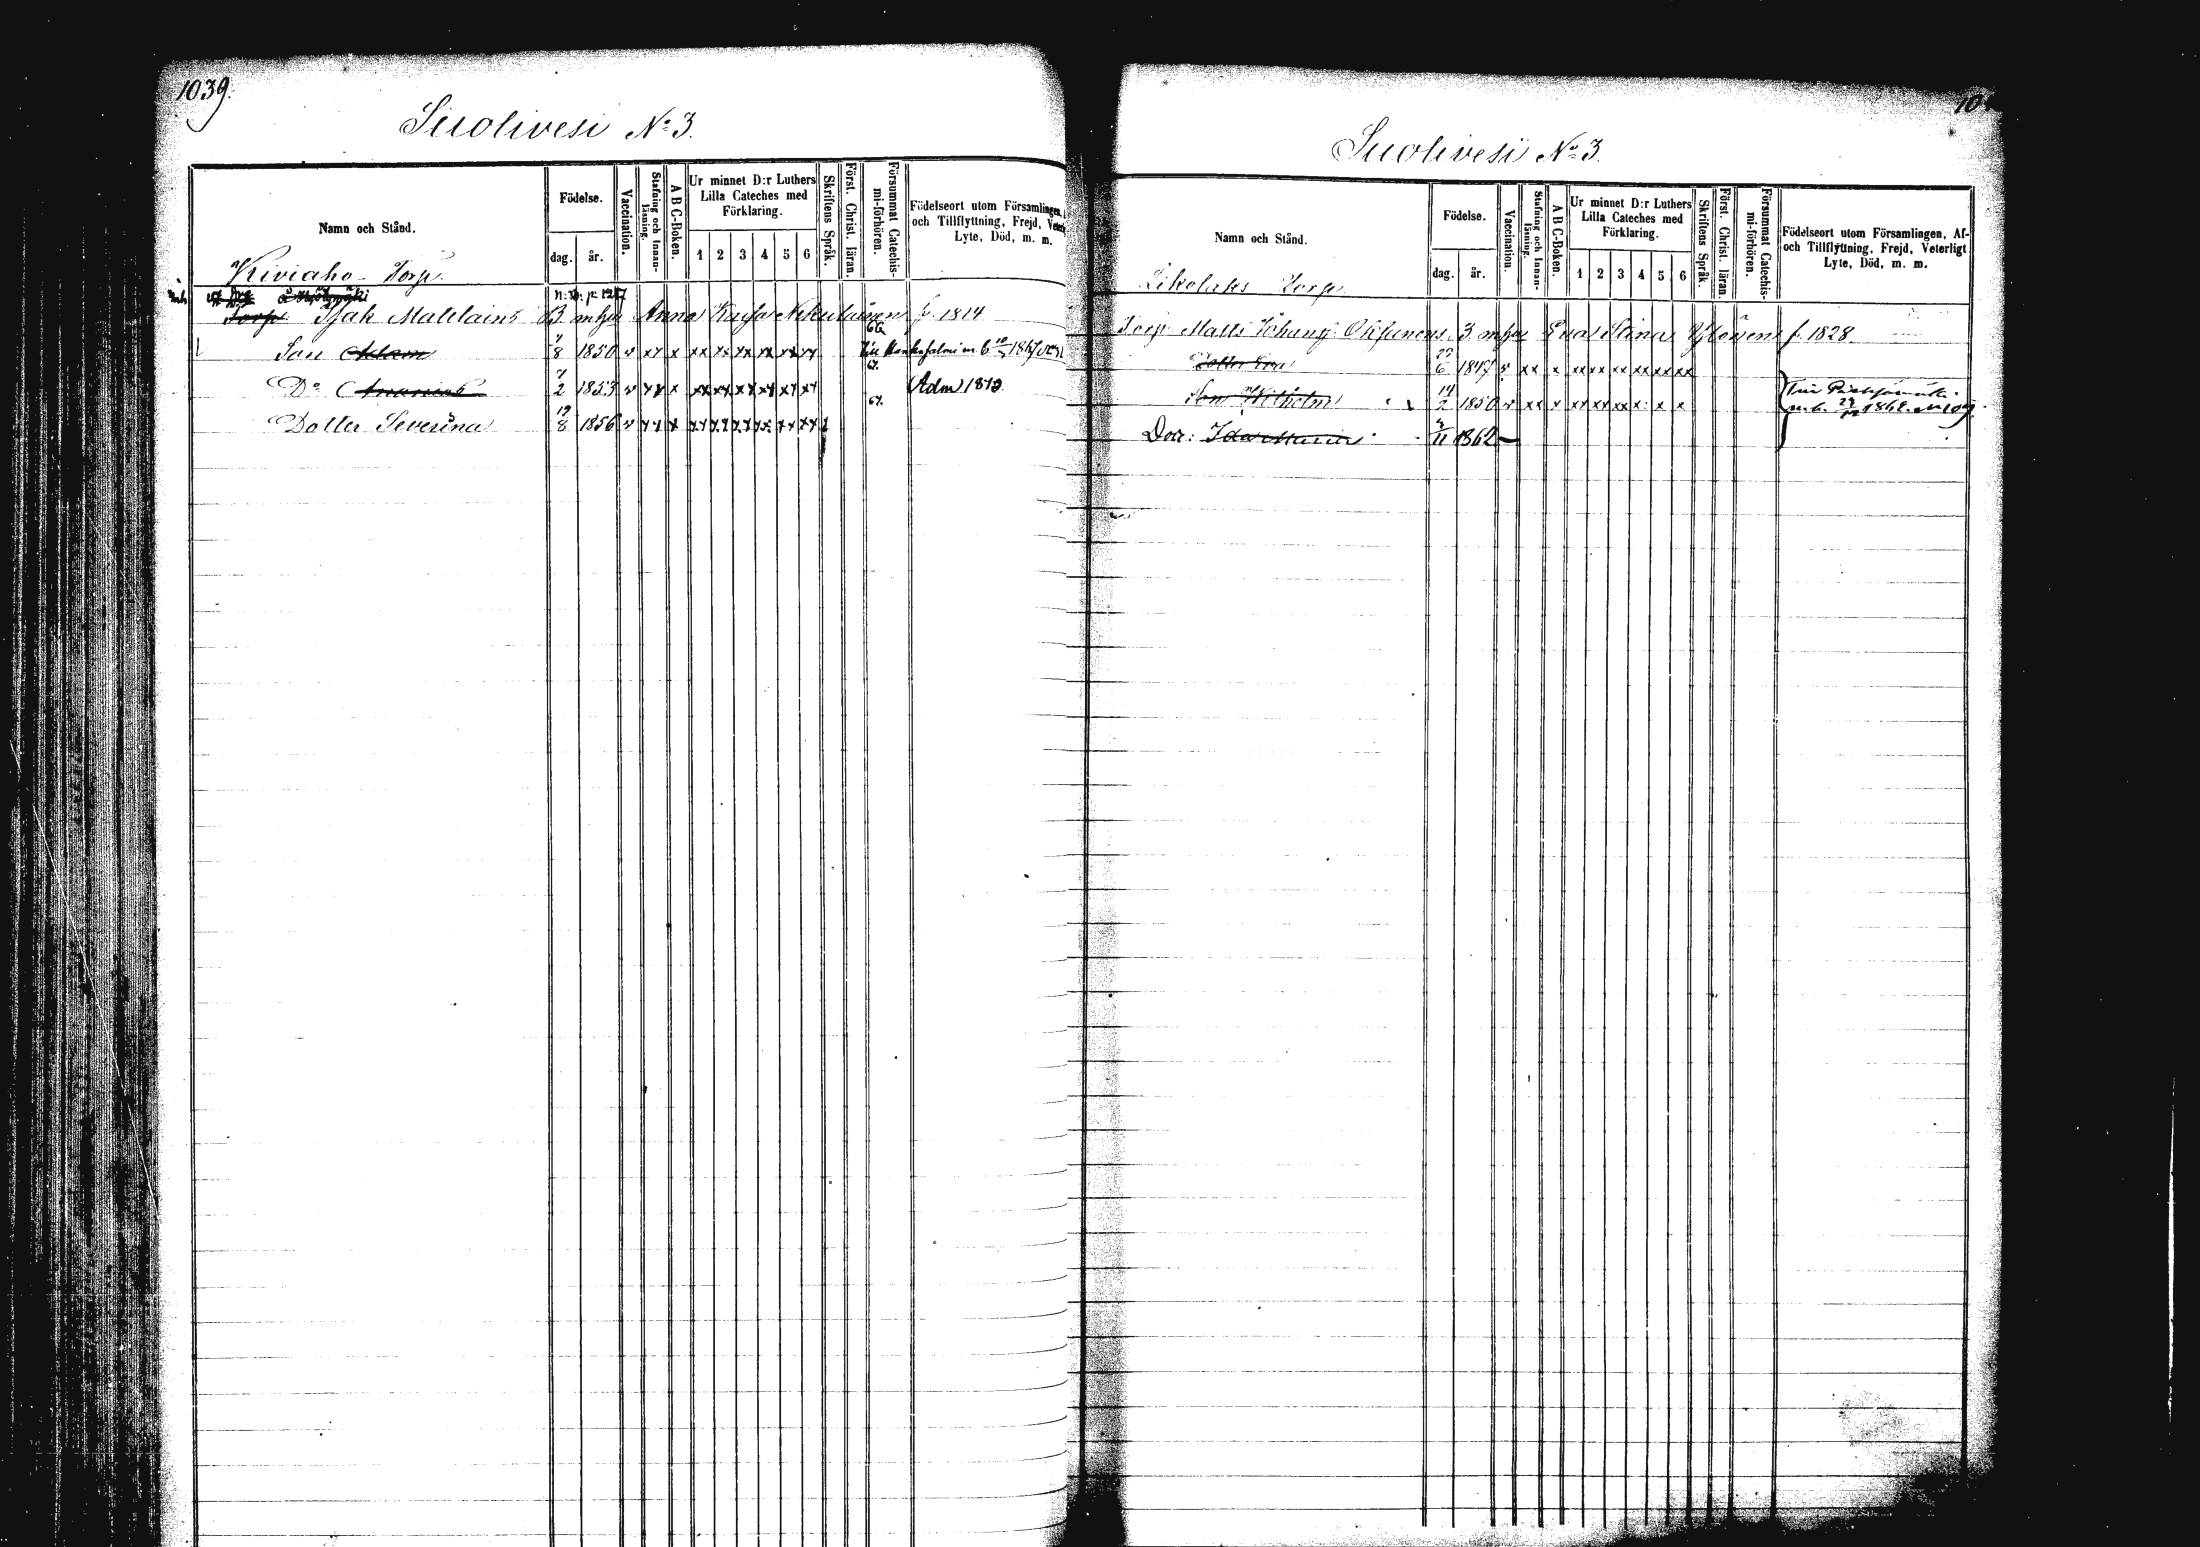 1039.
Suolivesi No 3.
Namn och Stånd.
Födelse.
dag. år.
Vaccination.
Stafning och Innan-läsning.
A B C-Boken.
Ur minnet D:r Luthers Lilla Cateches med Förklaring.
1 2 3 4 5 6
Skriftens Språk.
Först. Christ. läran.
Försummat Catechis-mi-förhören.
Födelseort utom Församlingen,
och Tillflyttning, Frejd,
Lyte, Död, m. m.
Kiviaho Torp
Torp Isak Matilains 3 mhu Anna Kaisa Nikulainen f. 1814
66
Son Adam 7/8 1850 v xx x xx xx xx xx xx xx Till m. b. 1867
67.
Do Ananias 7/2 1853 v xx x xx xx xx xx xx xx Adm 1873
67.
Dotter Severina 19/8 1856 v xx x xx xx xx xx xx xx
Suolivesi No 3.
Namn och Stånd.
Födelse.
dag. år.
Vaccination.
Stafning och Innan-läsning.
A B C-Boken.
Ur minnet D:r Luthers Lilla Cateches med Förklaring.
1 2 3 4 5 6
Skriftens Språk.
Först. Christ. läran.
Försummat Catechis-mi-förhören.
Födelseort utom Församlingen, Af-
och Tillflyttning, Frejd, Veterligt
Lyte, Död, m. m.
Likolaks Torp
Torp Matts 3 mhu Eva Stina Ylönen f. 1828.
Dotter Eva 6 1847 v xx x xx xx xx xx xx xx
Son Wilhelm 14/2 1850 v xx x xx xx xx x x x
Dotr: Ida Maria 11 1862
Till Pieksämäki
m. b. 1862